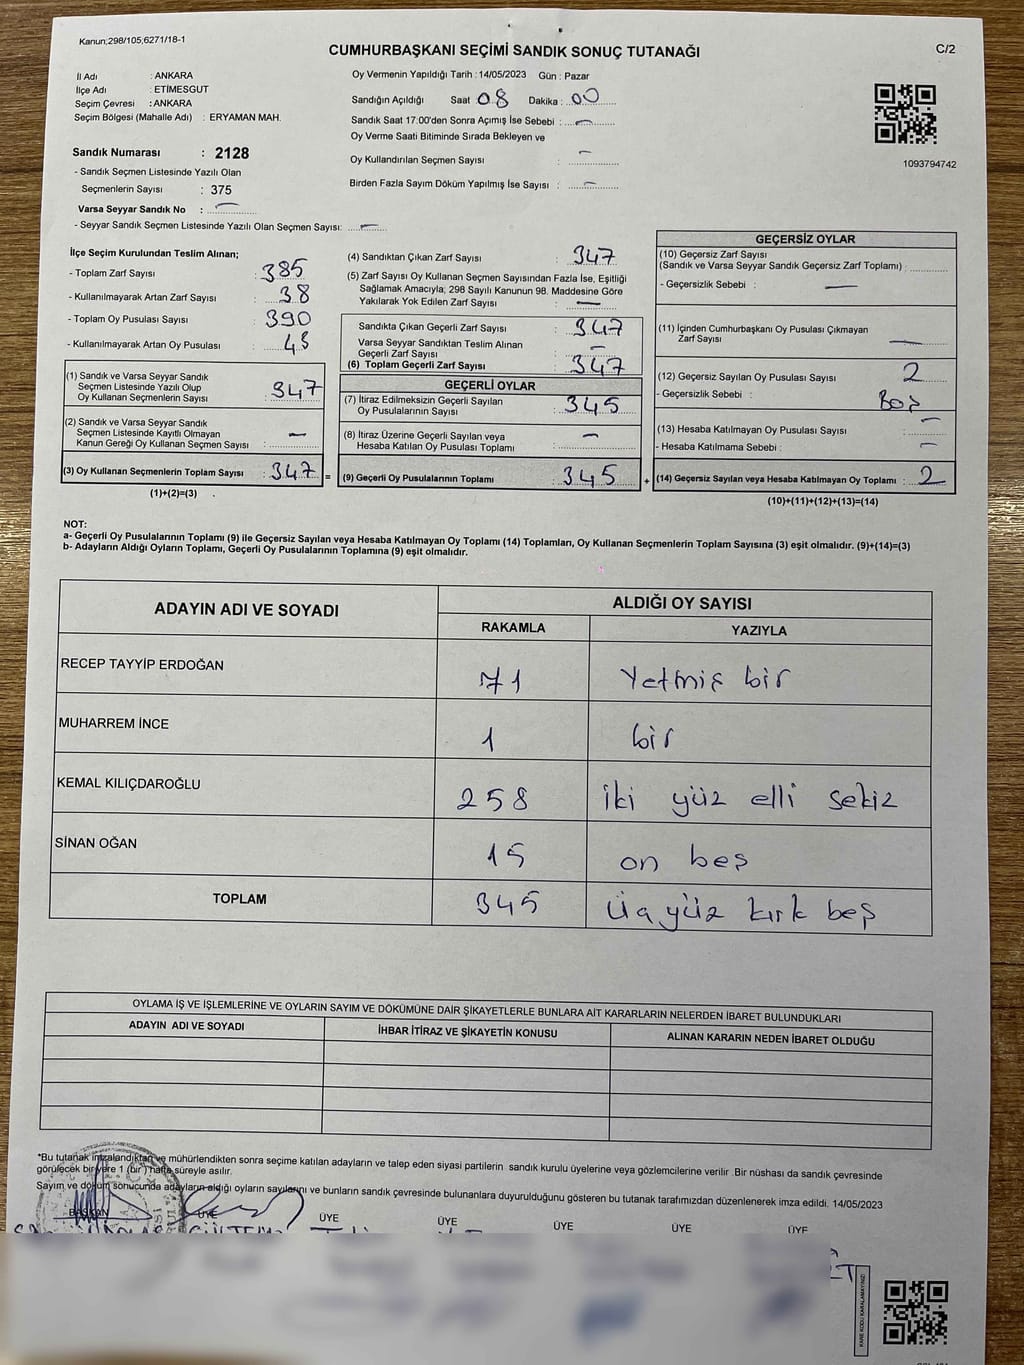 Kanun;298/105;6271/18-1
C/2
CUMHURBAŞKANI SEÇİMİ SANDIK SONUÇ TUTANAĞI
İl Adı : ANKARA
İlçe Adı : ETİMESGUT
Seçim Çevresi : ANKARA
Seçim Bölgesi (Mahalle Adı) : ERYAMAN MAH.
Sandık Numarası : 2128
- Sandık Seçmen Listesinde Yazılı Olan
Seçmenlerin Sayısı : 375
Varsa Seyyar Sandık No : —
- Seyyar Sandık Seçmen Listesinde Yazılı Olan Seçmen Sayısı: —
Oy Vermenin Yapıldığı Tarih : 14/05/2023 Gün : Pazar
Sandığın Açıldığı Saat 08 Dakika : 00
Sandık Saat 17:00'den Sonra Açımış İse Sebebi : —
Oy Verme Saati Bitiminde Sırada Bekleyen ve
Oy Kullandırılan Seçmen Sayısı : —
Birden Fazla Sayım Döküm Yapılmış İse Sayısı : —
1093794742
İlçe Seçim Kurulundan Teslim Alınan;
- Toplam Zarf Sayısı : 385
- Kullanılmayarak Artan Zarf Sayısı : 38
- Toplam Oy Pusulası Sayısı : 390
- Kullanılmayarak Artan Oy Pusulası : 43
(1) Sandık ve Varsa Seyyar Sandık
Seçmen Listesinde Yazılı Olup
Oy Kullanan Seçmenlerin Sayısı : 347
(2) Sandık ve Varsa Seyyar Sandık
Seçmen Listesinde Kayıtlı Olmayan
Kanun Gereği Oy Kullanan Seçmen Sayısı : —
(3) Oy Kullanan Seçmenlerin Toplam Sayısı : 347 =
(1)+(2)=(3)
(4) Sandıktan Çıkan Zarf Sayısı : 347
(5) Zarf Sayısı Oy Kullanan Seçmen Sayısından Fazla İse, Eşitliği
Sağlamak Amacıyla; 298 Sayılı Kanunun 98. Maddesine Göre
Yakılarak Yok Edilen Zarf Sayısı : —
Sandıkta Çıkan Geçerli Zarf Sayısı : 347
Varsa Seyyar Sandıktan Teslim Alınan
Geçerli Zarf Sayısı : —
(6) Toplam Geçerli Zarf Sayısı : 347
GEÇERLİ OYLAR
(7) İtiraz Edilmeksizin Geçerli Sayılan
Oy Pusulalarının Sayısı : 345
(8) İtiraz Üzerine Geçerli Sayılan veya
Hesaba Katılan Oy Pusulası Toplamı : —
(9) Geçerli Oy Pusulalarının Toplamı : 345 +
GEÇERSİZ OYLAR
(10) Geçersiz Zarf Sayısı
(Sandık ve Varsa Seyyar Sandık Geçersiz Zarf Toplamı) :
- Geçersizlik Sebebi : —
(11) İçinden Cumhurbaşkanı Oy Pusulası Çıkmayan
Zarf Sayısı : —
(12) Geçersiz Sayılan Oy Pusulası Sayısı : 2
- Geçersizlik Sebebi : Boş
(13) Hesaba Katılmayan Oy Pusulası Sayısı : —
- Hesaba Katılmama Sebebi : —
(14) Geçersiz Sayılan veya Hesaba Katılmayan Oy Toplamı : 2
(10)+(11)+(12)+(13)=(14)
NOT:
a- Geçerli Oy Pusulalarının Toplamı (9) ile Geçersiz Sayılan veya Hesaba Katılmayan Oy Toplamı (14) Toplamları, Oy Kullanan Seçmenlerin Toplam Sayısına (3) eşit olmalıdır. (9)+(14)=(3)
b- Adayların Aldığı Oyların Toplamı, Geçerli Oy Pusulalarının Toplamına (9) eşit olmalıdır.
ADAYIN ADI VE SOYADI ALDIĞI OY SAYISI
RAKAMLA YAZIYLA
RECEP TAYYİP ERDOĞAN 71 Yetmiş bir
MUHARREM İNCE 1 bir
KEMAL KILIÇDAROĞLU 258 iki yüz elli sekiz
SİNAN OĞAN 15 on beş
TOPLAM 345 Üçyüz kırk beş
OYLAMA İŞ VE İŞLEMLERİNE VE OYLARIN SAYIM VE DÖKÜMÜNE DAİR ŞİKAYETLERLE BUNLARA AİT KARARLARIN NELERDEN İBARET BULUNDUKLARI
ADAYIN ADI VE SOYADI İHBAR İTİRAZ VE ŞİKAYETİN KONUSU ALINAN KARARIN NEDEN İBARET OLDUĞU
*Bu tutanak imzalandıktan ve mühürlendikten sonra seçime katılan adayların ve talep eden siyasi partilerin sandık kurulu üyelerine veya gözlemcilerine verilir .Bir nüshası da sandık çevresinde
görülecek bir yere 1 (bir ) hafta süreyle asılır.
Sayım ve döküm sonucunda adayların aldığı oyların sayılarını ve bunların sandık çevresinde bulunanlara duyurulduğunu gösteren bu tutanak tarafımızdan düzenlenerek imza edildi. 14/05/2023
BAŞKAN ÜYE ÜYE ÜYE ÜYE ÜYE ÜYE
KARE KODU KARALAMAYINIZ!